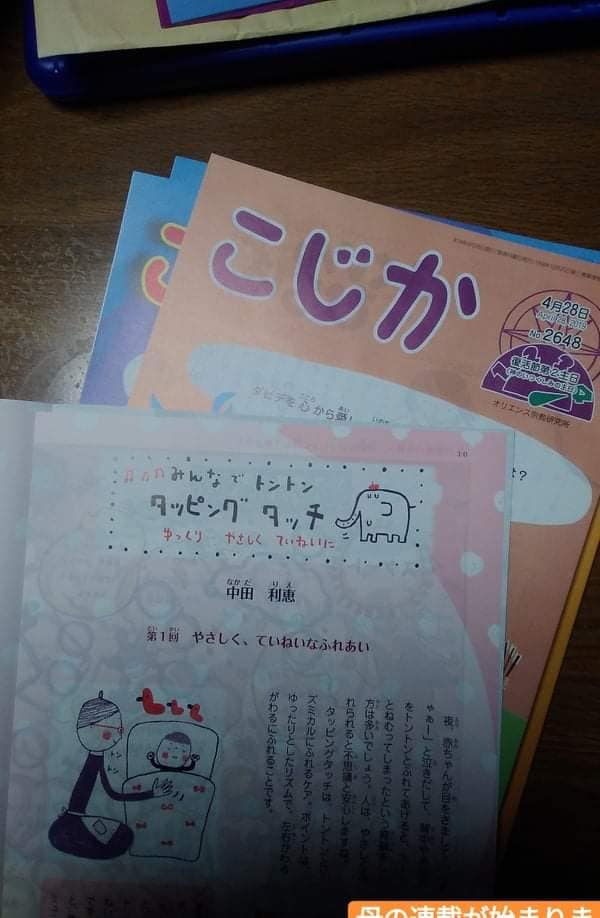 こじか
4月28日
April 28, 2019
No.2648
復活節第2主日
(神のいつくしみの主日)
オリエンス宗教研究所
ダビデを心から愛し
10
みんなで トントン
タッピング タッチ
ゆっくり やさしく ていねいに
なかた りえ
中田 利恵
第1回 やさしく、ていねいなふれあい
夜、赤ちゃんが目をさまして
ゃあー」と泣きだして、
をトントンとふれてあげると、
とねむってしまったという経験を
方は多いでしょう。人は、やさしく
れられると不思議と安心しますね。
タッピングタッチは、トントンと
ズミカルにふれるケア。ポイントは、
ゆったりとしたリズムで、左右かわる
がわるにふれることです。
トン
トン
母の連載が始まりま